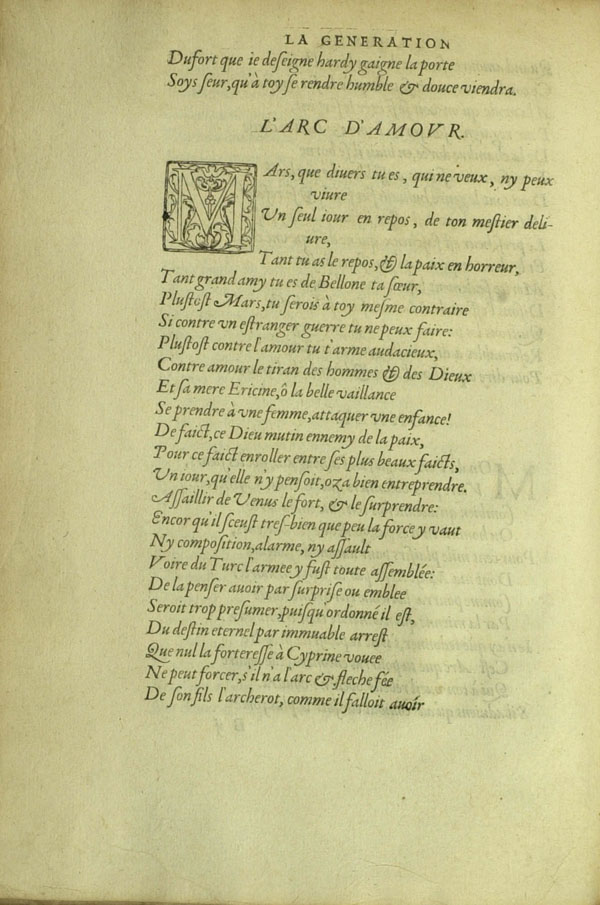 LA GENERATION
Dufort que ie deſeigne hardy gaigne la porte
Soys ſeur, qu'à toy ſe rendre humble & douce viendra.
L'ARC D'AMOVR.
MArs, que diuers tu es, qui ne veux, ny peux
viure
Vn ſeul iour en repos, de ton meſtier deli-
ure,
Tant tu as le repos, & la paix en horreur,
Tant grand amy tu es de Bellone ta ſœur,
Pluſtoſt Mars, tu ſerois à toy meſme contraire
Si contre vn eſtranger guerre tu ne peux faire:
Pluſtoſt contre l'amour tu t'arme audacieux,
Contre amour le tiran des hommes & des Dieux
Et ſa mere Ericine, ô la belle vaillance
Se prendre à vne femme, attaquer vne enfance!
De faict, ce Dieu mutin ennemy de la paix,
Pour ce faict enroller entre ſes plus beaux faicts,
Vn iour, qu'elle n'y penſoit, oza bien entreprendre.
Aſſaillir de Venus le fort, & le ſurprendre:
Encor qu'il ſceuſt tres-bien que peu la force y vaut
Ny compoſition, alarme, ny aſſault
Voire du Turc l'armee y fuſt toute aſſemblée:
De la penſer auoir par ſurpriſe ou emblee
Seroit trop preſumer, puiſqu'ordonné il eſt,
Du deſtin eternel par immuable arreſt
Que nul la fortereſſe à Cyprine vouee
Ne peut forcer, s'il n'a l'arc & fleche fée
De ſon fils l'archerot, comme il falloit auoir